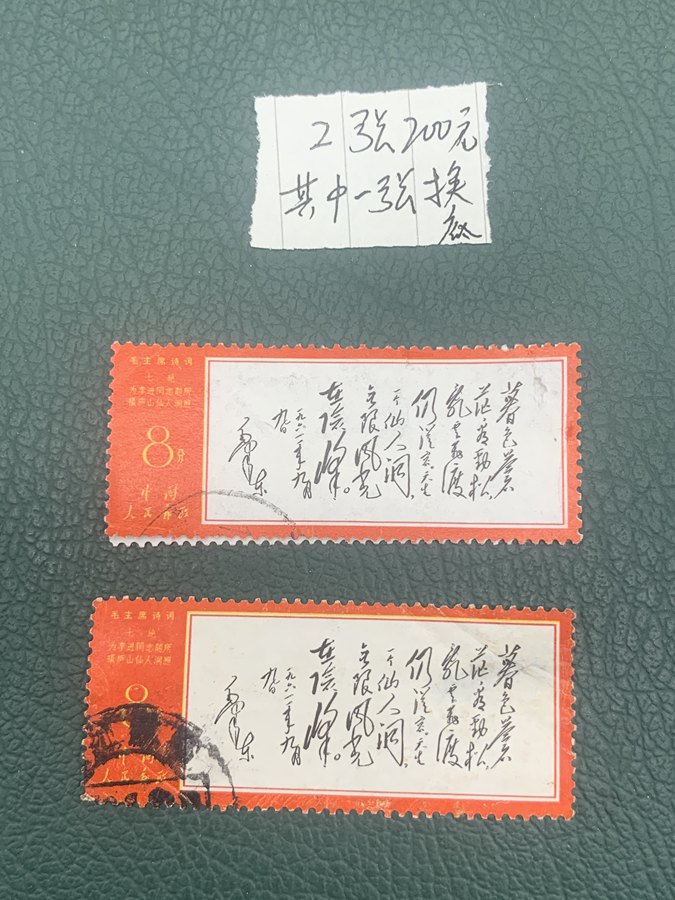 2张200元
其中一张换
底
毛主席诗词
七绝
为李进同志题所
摄庐山仙人洞照
8分
中国
人民邮政
暮色苍
茫看劲松,
乱云飞渡
仍从容。天生
一个仙人洞,
无限风光
在险峰。
一九六一年九月
九日
毛泽东
毛主席诗词
七绝
为李进同志题所
摄庐山仙人洞照
8
中国
人民邮政
暮色苍
茫看劲松,
乱云飞渡
仍从容。天生
一个仙人洞,
无限风光
在险峰。
一九六一年九月
九日
毛泽东